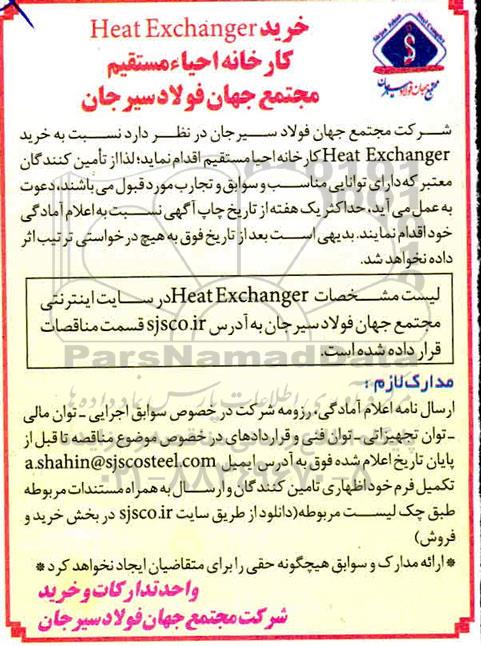 خرید Heat Exchanger
کارخانه احیاء مستقیم
مجتمع جهان فولاد سیرجان
شرکت مجتمع جهان فولاد سیرجان در نظر دارد نسبت به خرید
Heat Exchanger کارخانه احیا مستقیم اقدام نماید؛ لذا از تأمین کنندگان
معتبر که دارای توانایی مناسب و سوابق و تجارب مورد قبول می باشند، دعوت
به عمل می آید، حداکثر یک هفته از تاریخ چاپ آگهی نسبت به اعلام آمادگی
خود اقدام نمایند. بدیهی است بعد از تاریخ فوق به هیچ درخواستی ترتیب اثر
داده نخواهد شد.
لیست مشخصات Heat Exchanger در سایت اینترنتی
مجتمع جهان فولاد سیرجان به آدرس sjsco.ir قسمت مناقصات
قرار داده شده است.
مدارک لازم :
ارسال نامه اعلام آمادگی، رزومه شرکت در خصوص سوابق اجرایی - توان مالی
- توان تجهیزاتی - توان فنی و قراردادهای در خصوص موضوع مناقصه تا قبل از
پایان تاریخ اعلام شده فوق به آدرس ایمیل a.shahin@sjscosteel.com
تکمیل فرم خود اظهاری تامین کنندگان و ارسال به همراه مستندات مربوطه
طبق چک لیست مربوطه (دانلود از طریق سایت sjsco.ir در بخش خرید و
فروش)
* ارائه مدارک و سوابق هیچگونه حقی را برای متقاضیان ایجاد نخواهد کرد *
واحد تدارکات و خرید
شرکت مجتمع جهان فولاد سیرجان
ParsNamadData